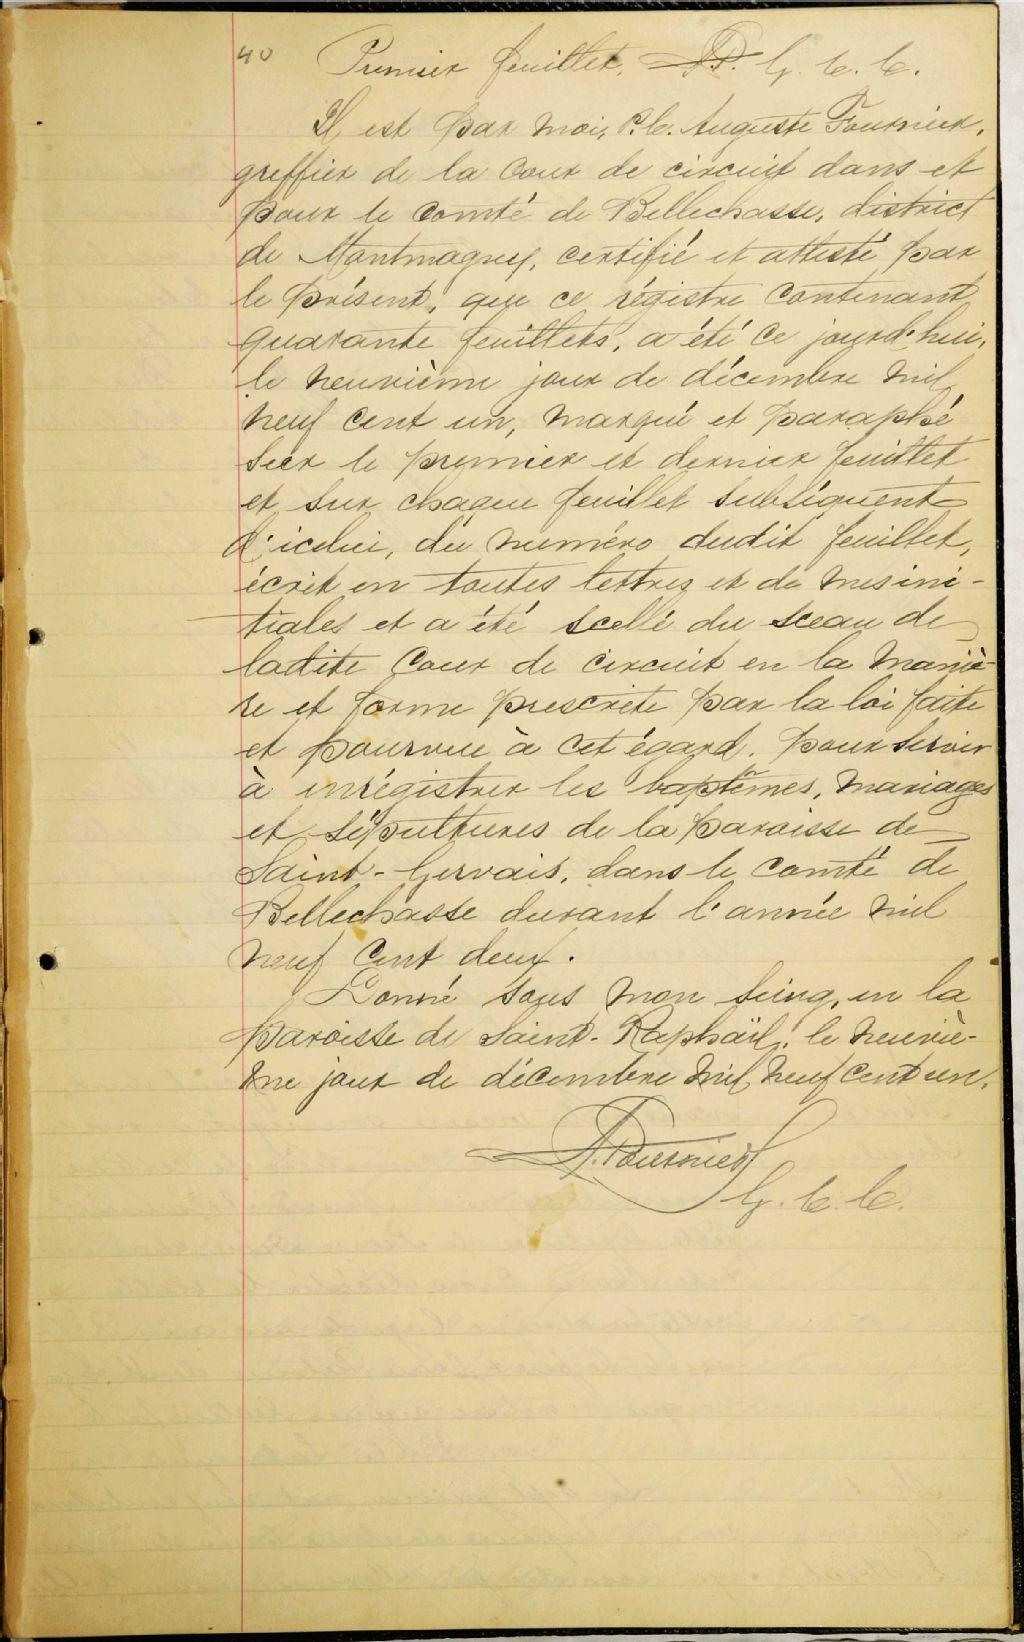 40 Premier feuillet, AF. G. C. C.
Il est par moi, P.C. Auguste Fournier,
greffier de la Cour de circuit dans et
pour le Comté de Bellechasse, district
de Montmagny, certifié et attesté par
le présent, que ce régistre contenant
quarante feuillets, a été ce jourd'hui,
le neuvième jour de décembre mil
neuf cent un, marqué et paraphé
sur le premier et dernier feuillet
et sur chaque feuillet subséquent
d'icelui, du numéro dudit feuillet,
écrit en toutes lettres et de mes ini-
tiales et a été scellé du sceau de
ladite Cour de circuit en la maniè-
re et forme prescrite par la loi faite
et pourvue à cet égard, pour servir
à enrégistrer les baptêmes, mariages
et sépultures de la paroisse de
Saint-Gervais, dans le comté de
Bellechasse durant l'année mil
neuf cent deux.
Donné sous mon seing, en la
paroisse de Saint-Raphaël, le neuviè-
me jour de décembre mil neuf cent un.
A. Fournier
G. C. C.